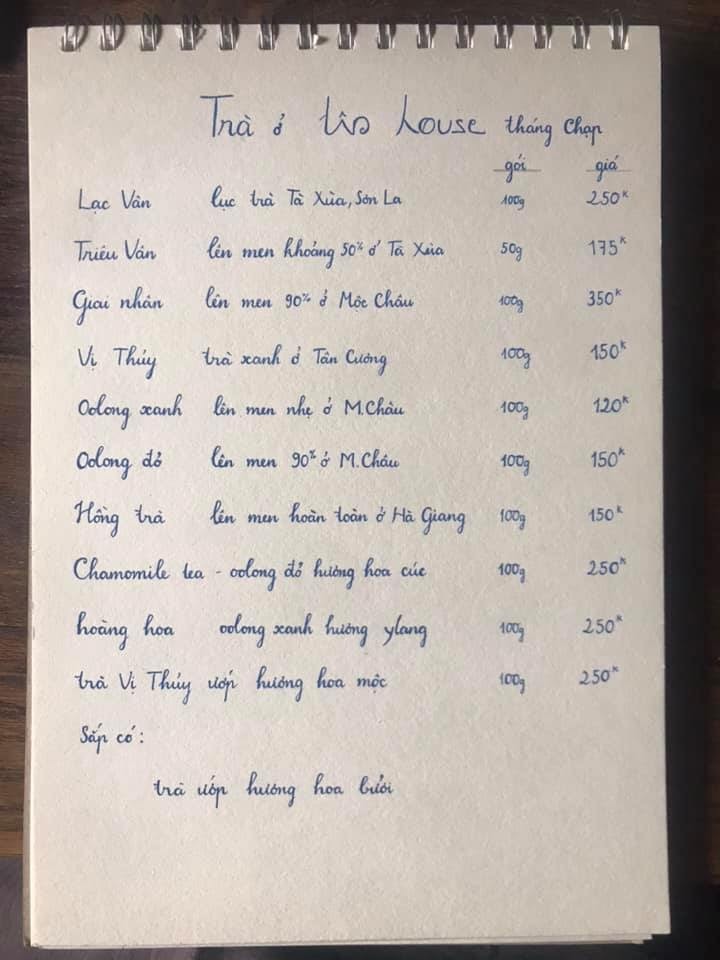 Trà ở tên house tháng Chạp
gói giá
Lạc Vân lục trà Tà Xùa, Sơn La 100g 250K
Triêu Vân lên men khoảng 50% ở Tà Xùa 50g 175K
Giai nhân lên men 90% ở Mộc Châu 100g 350K
Vị Thủy trà xanh ở Tân Cương 100g 150K
Oolong xanh lên men nhẹ ở M.Châu 100g 120K
Oolong đỏ lên men 90% ở M.Châu 100g 150K
Hồng trà lên men hoàn toàn ở Hà Giang 100g 150K
Chamomile tea - oolong đỏ hương hoa cúc 100g 250K
hoàng hoa oolong xanh hương ylang 100g 250K
trà Vị Thủy ướp hương hoa mộc 100g 250K
Sắp có:
trà ướp hương hoa bưởi